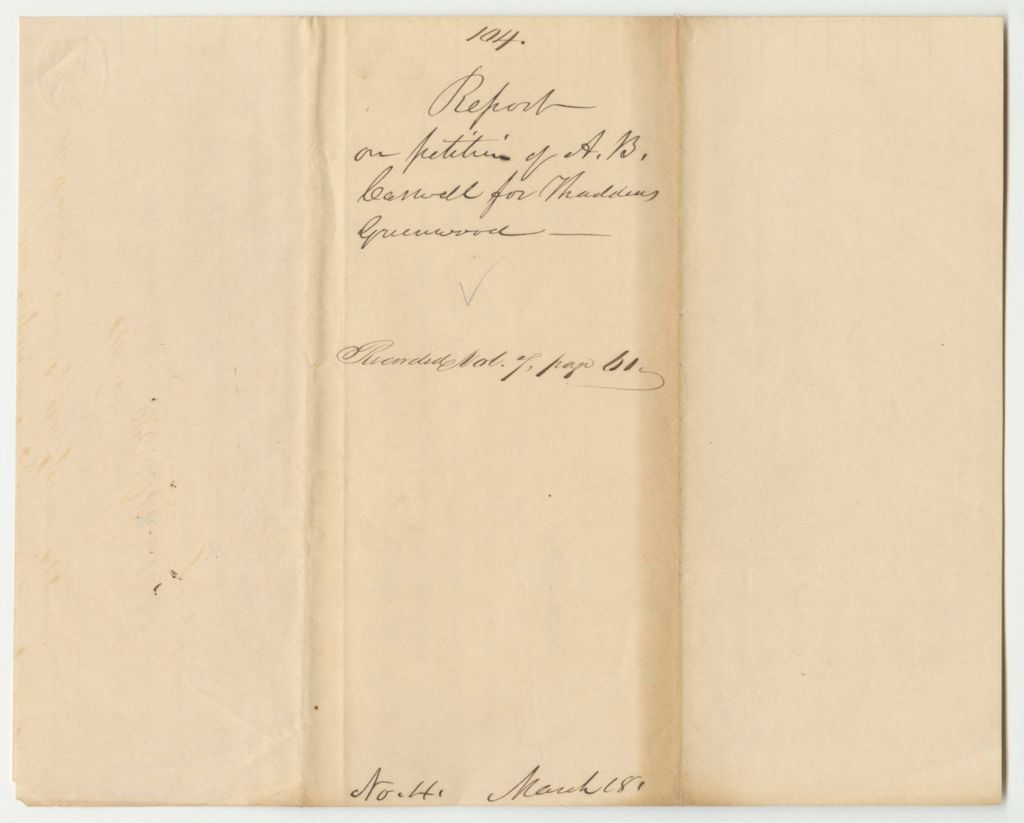 104.
Report
on petition of A. B.
Caswell for Thaddeus
Greenwood —
Recorded Vol. 7, page 61.
No. 4. March 18.